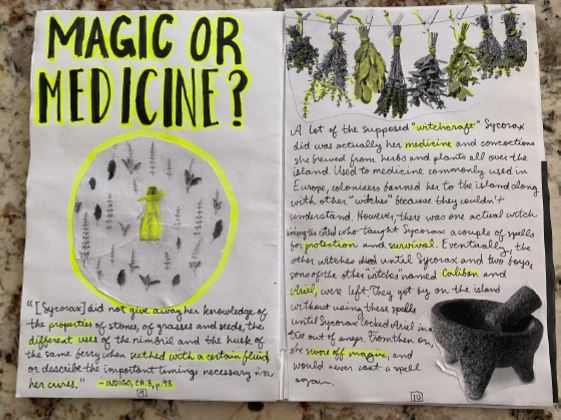 MAGIC OR
MEDICINE?
"[Sycorax] did not give away her knowledge of
the properties of stones, of grasses and seeds, the
different uses of the nimbril and the husk of
the same berry when seethed with a certain fluid
or describe the important timings necessary in
her cures."
- INDIGO, CH. 3, p. 93
9
A lot of the supposed "witchcraft" Sycorax
did was actually her medicine and concoctions
she brewed from herbs and plants all over the
island. Used to medicine commonly used in
Europe, colonisers banned her to the island along
with other "witches" because they couldn't
understand. However, there was one actual witch
among the exiled who taught Sycorax a couple of spells
for protection and survival. Eventually, the
other witches died until Sycorax and two boys,
sons of the other "witches" named Caliban and
Ariel, were left. They got by on the island
without using these spells
until Sycorax locked Ariel in a
tree out of anger. From then on,
she swore off magic, and
would never cast a spell
again.
10